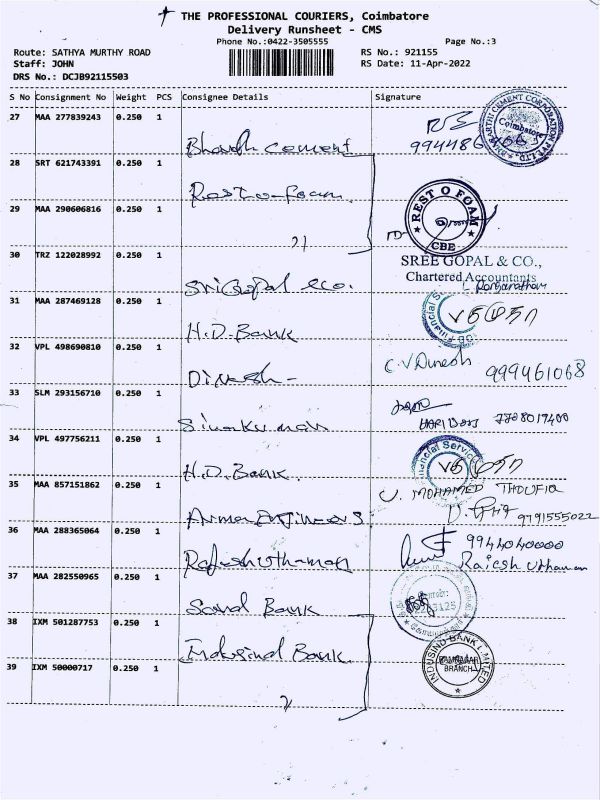 THE PROFESSIONAL COURIERS, Coimbatore
Delivery Runsheet - CMS
Phone No.:0422-3505555 Page No.:3
Route: SATHYA MURTHY ROAD RS No.: 921155
Staff: JOHN RS Date: 11-Apr-2022
DRS No.: DCJB92115503
S No Consignment No Weight PCS Consignee Details Signature
27 MAA 277839243 0.250 1
Bharath Cement 994486
28 SRT 621743391 0.250 1
Rest-o-foam
29 MAA 290606816 0.250 1
REST O FOAM
CBE
30 TRZ 122028992 0.250 1
SREE GOPAL & CO.,
Chartered Accountants
Sri Gopal &co.
31 MAA 287469128 0.250 1
H.D. Bank
32 VPL 498690810 0.250 1
Dinesh - C.V Dinesh 999461068
33 SLM 293156710 0.250 1
Sivakuman HARI DOSS 7708017400
34 VPL 497756211 0.250 1
H.D. Bank.
35 MAA 857151862 0.250 1
U. MOHAMED THOUFIQ
Armor Engineers 9791555022
36 MAA 288365064 0.250 1
9944040000
Rajeshuthaman Rajesh Uthaman
37 MAA 282550965 0.250 1
Sond Bank
38 IXM 501287753 0.250 1
Indusind Bank
39 IXM 50000717 0.250 1
INDUSIND BANK LIMITED
BRANCH